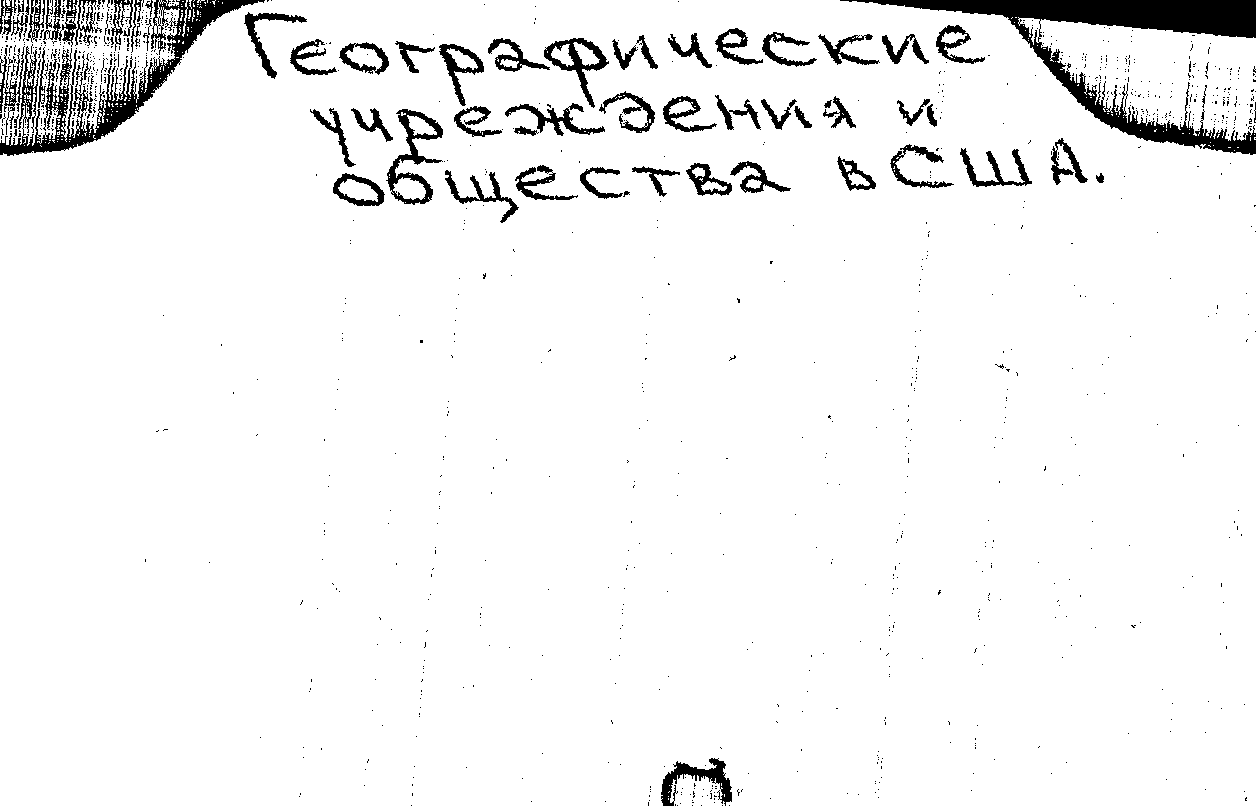 Географические
учреждения и
общества в США.